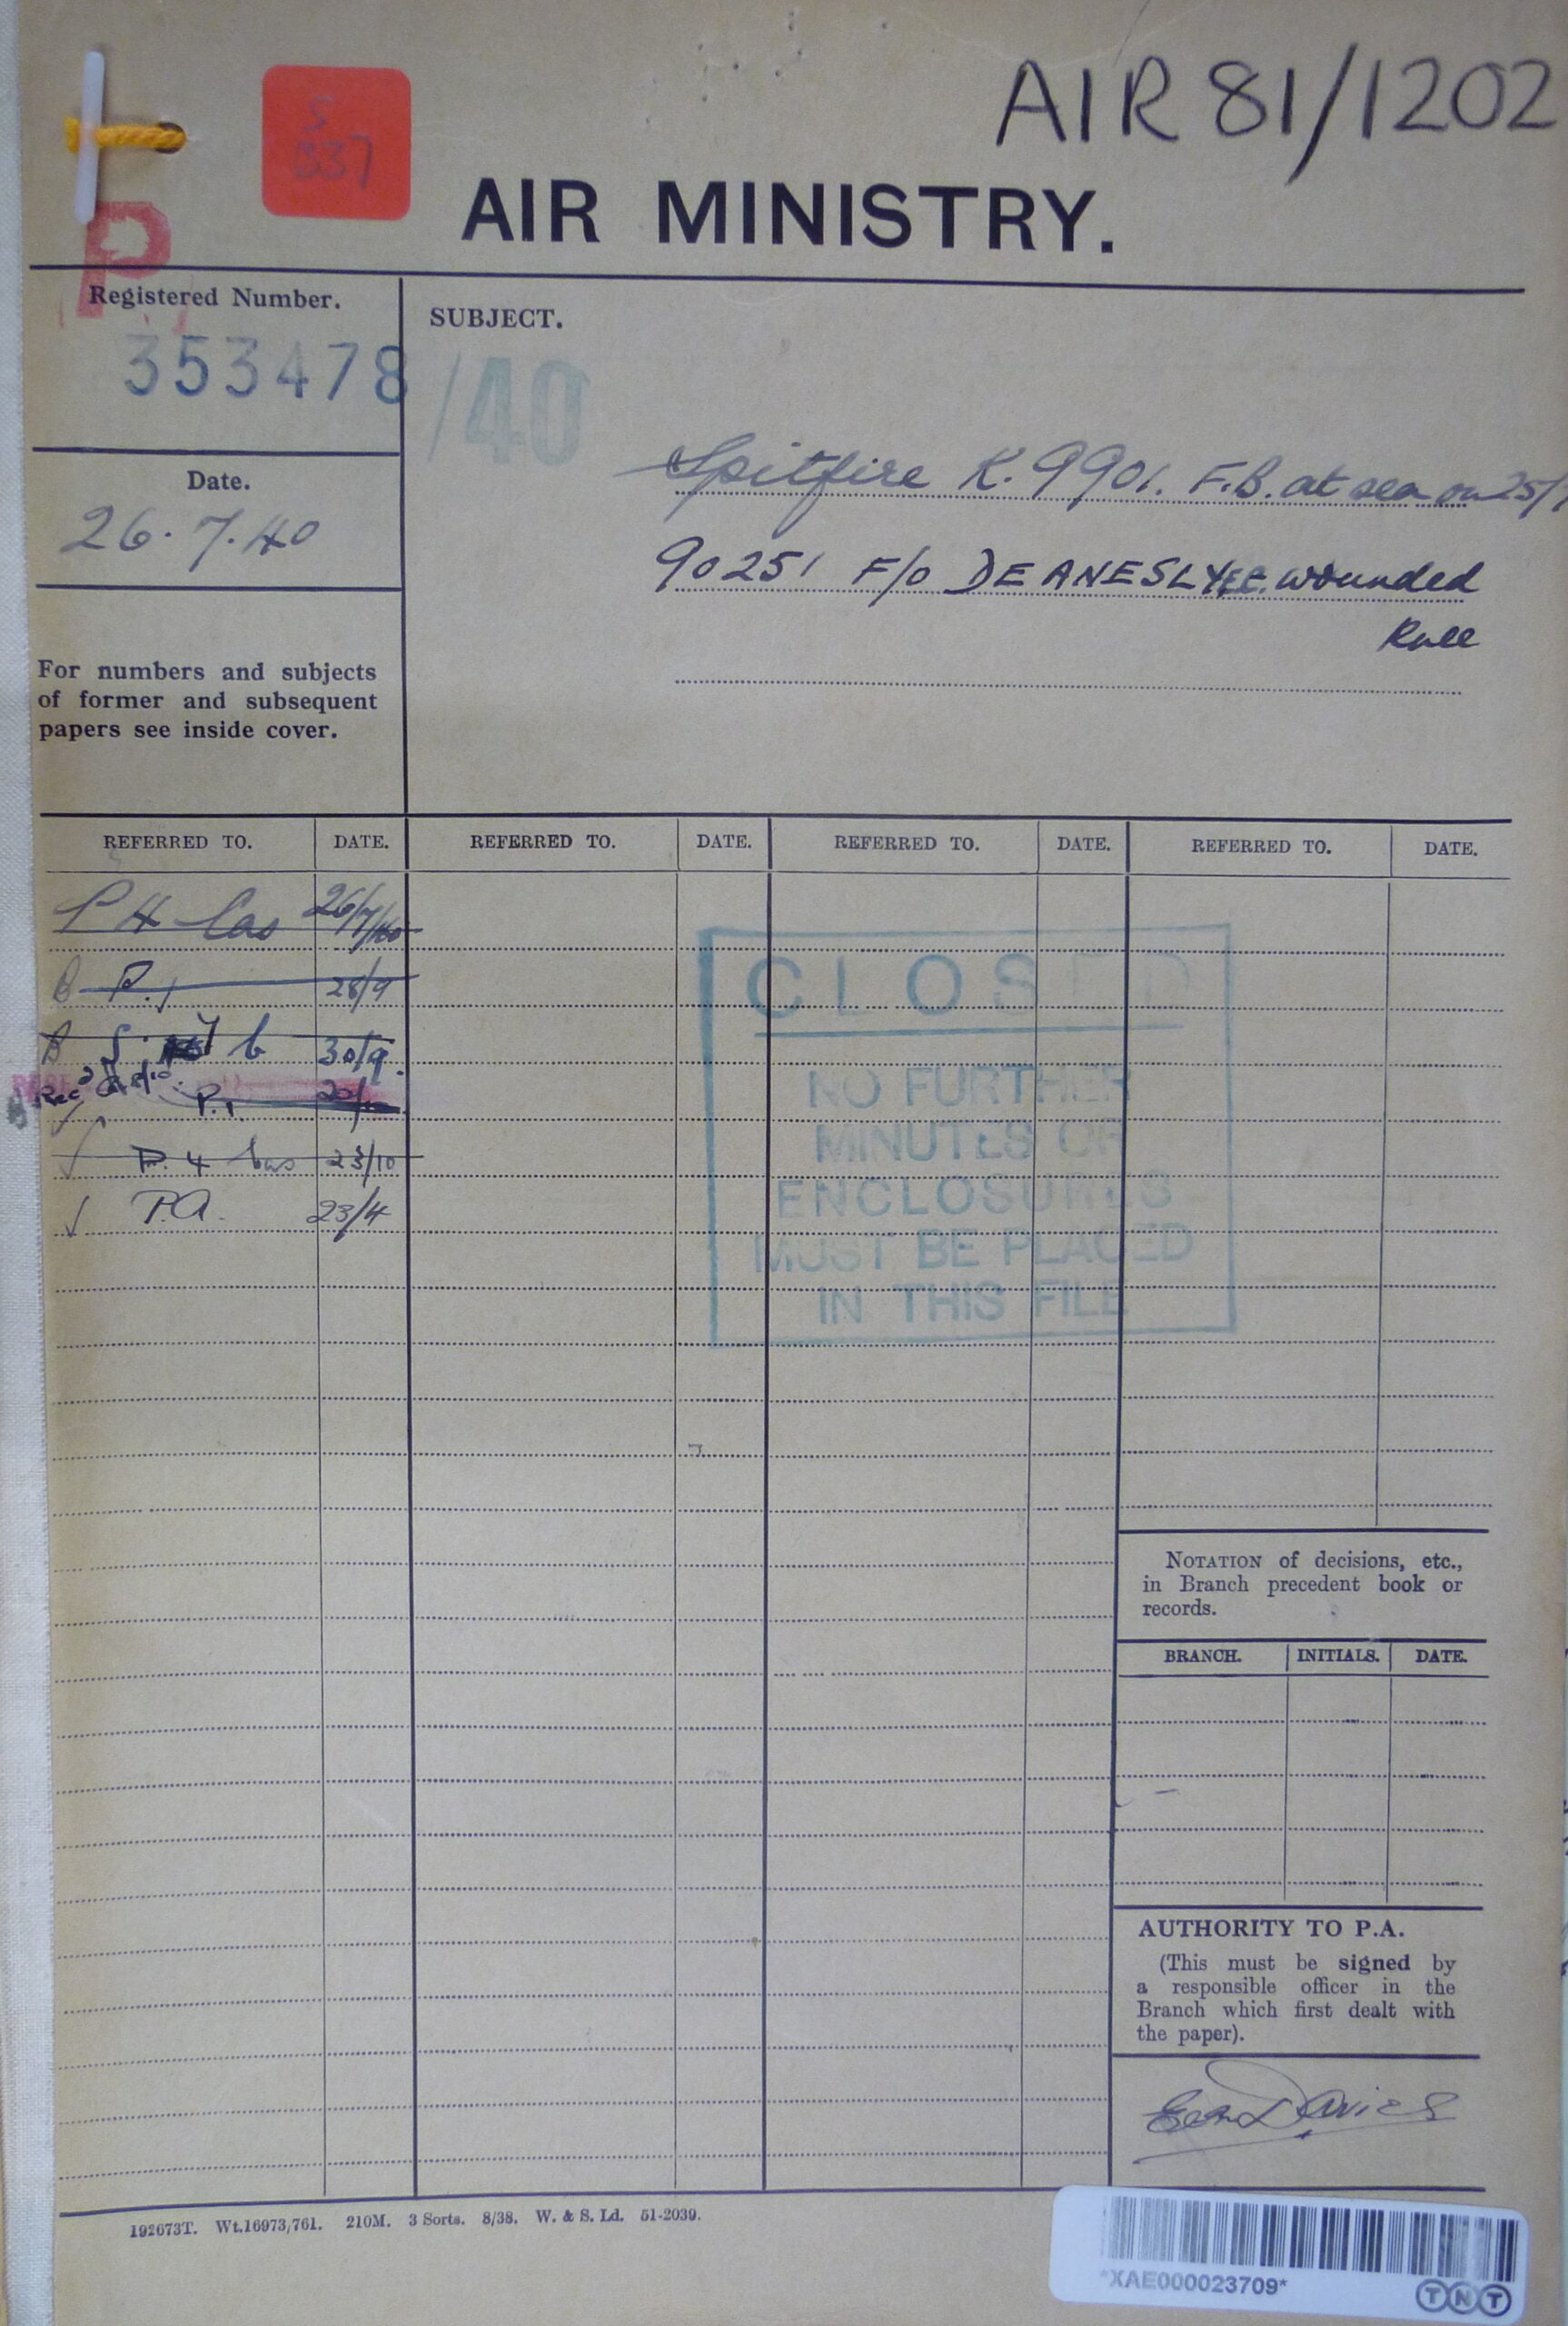 AIR 81/1202
S
037
AIR MINISTRY.
P
Registered Number.
353478
/40
SUBJECT.
Spitfire K.9901. F.B. at sea on 25/7
90251 F/O DEANESLY E.C. wounded
Date.
26.7.40
For numbers and subjects
of former and subsequent
papers see inside cover.
REFERRED TO. DATE. REFERRED TO. DATE. REFERRED TO. DATE. REFERRED TO. DATE.
P4 Cas 26/7/40
B P.1 28/9
B 30/9.
P.1 20/10
P.4 Cas 23/10
P.A. 23/4
CLOSED
NO FURTHER
MINUTES OR
ENCLOSURES
MUST BE PLACED
IN THIS FILE
NOTATION of decisions, etc.,
in Branch precedent book or
records.
BRANCH. INITIALS. DATE.
AUTHORITY TO P.A.
(This must be signed by
a responsible officer in the
Branch which first dealt with
the paper).
Davies
192673T. Wt.16973/761. 210M. 3 Sorts. 8/38. W. & S. Ld. 51-2039.
*XAE000023709*
TNT